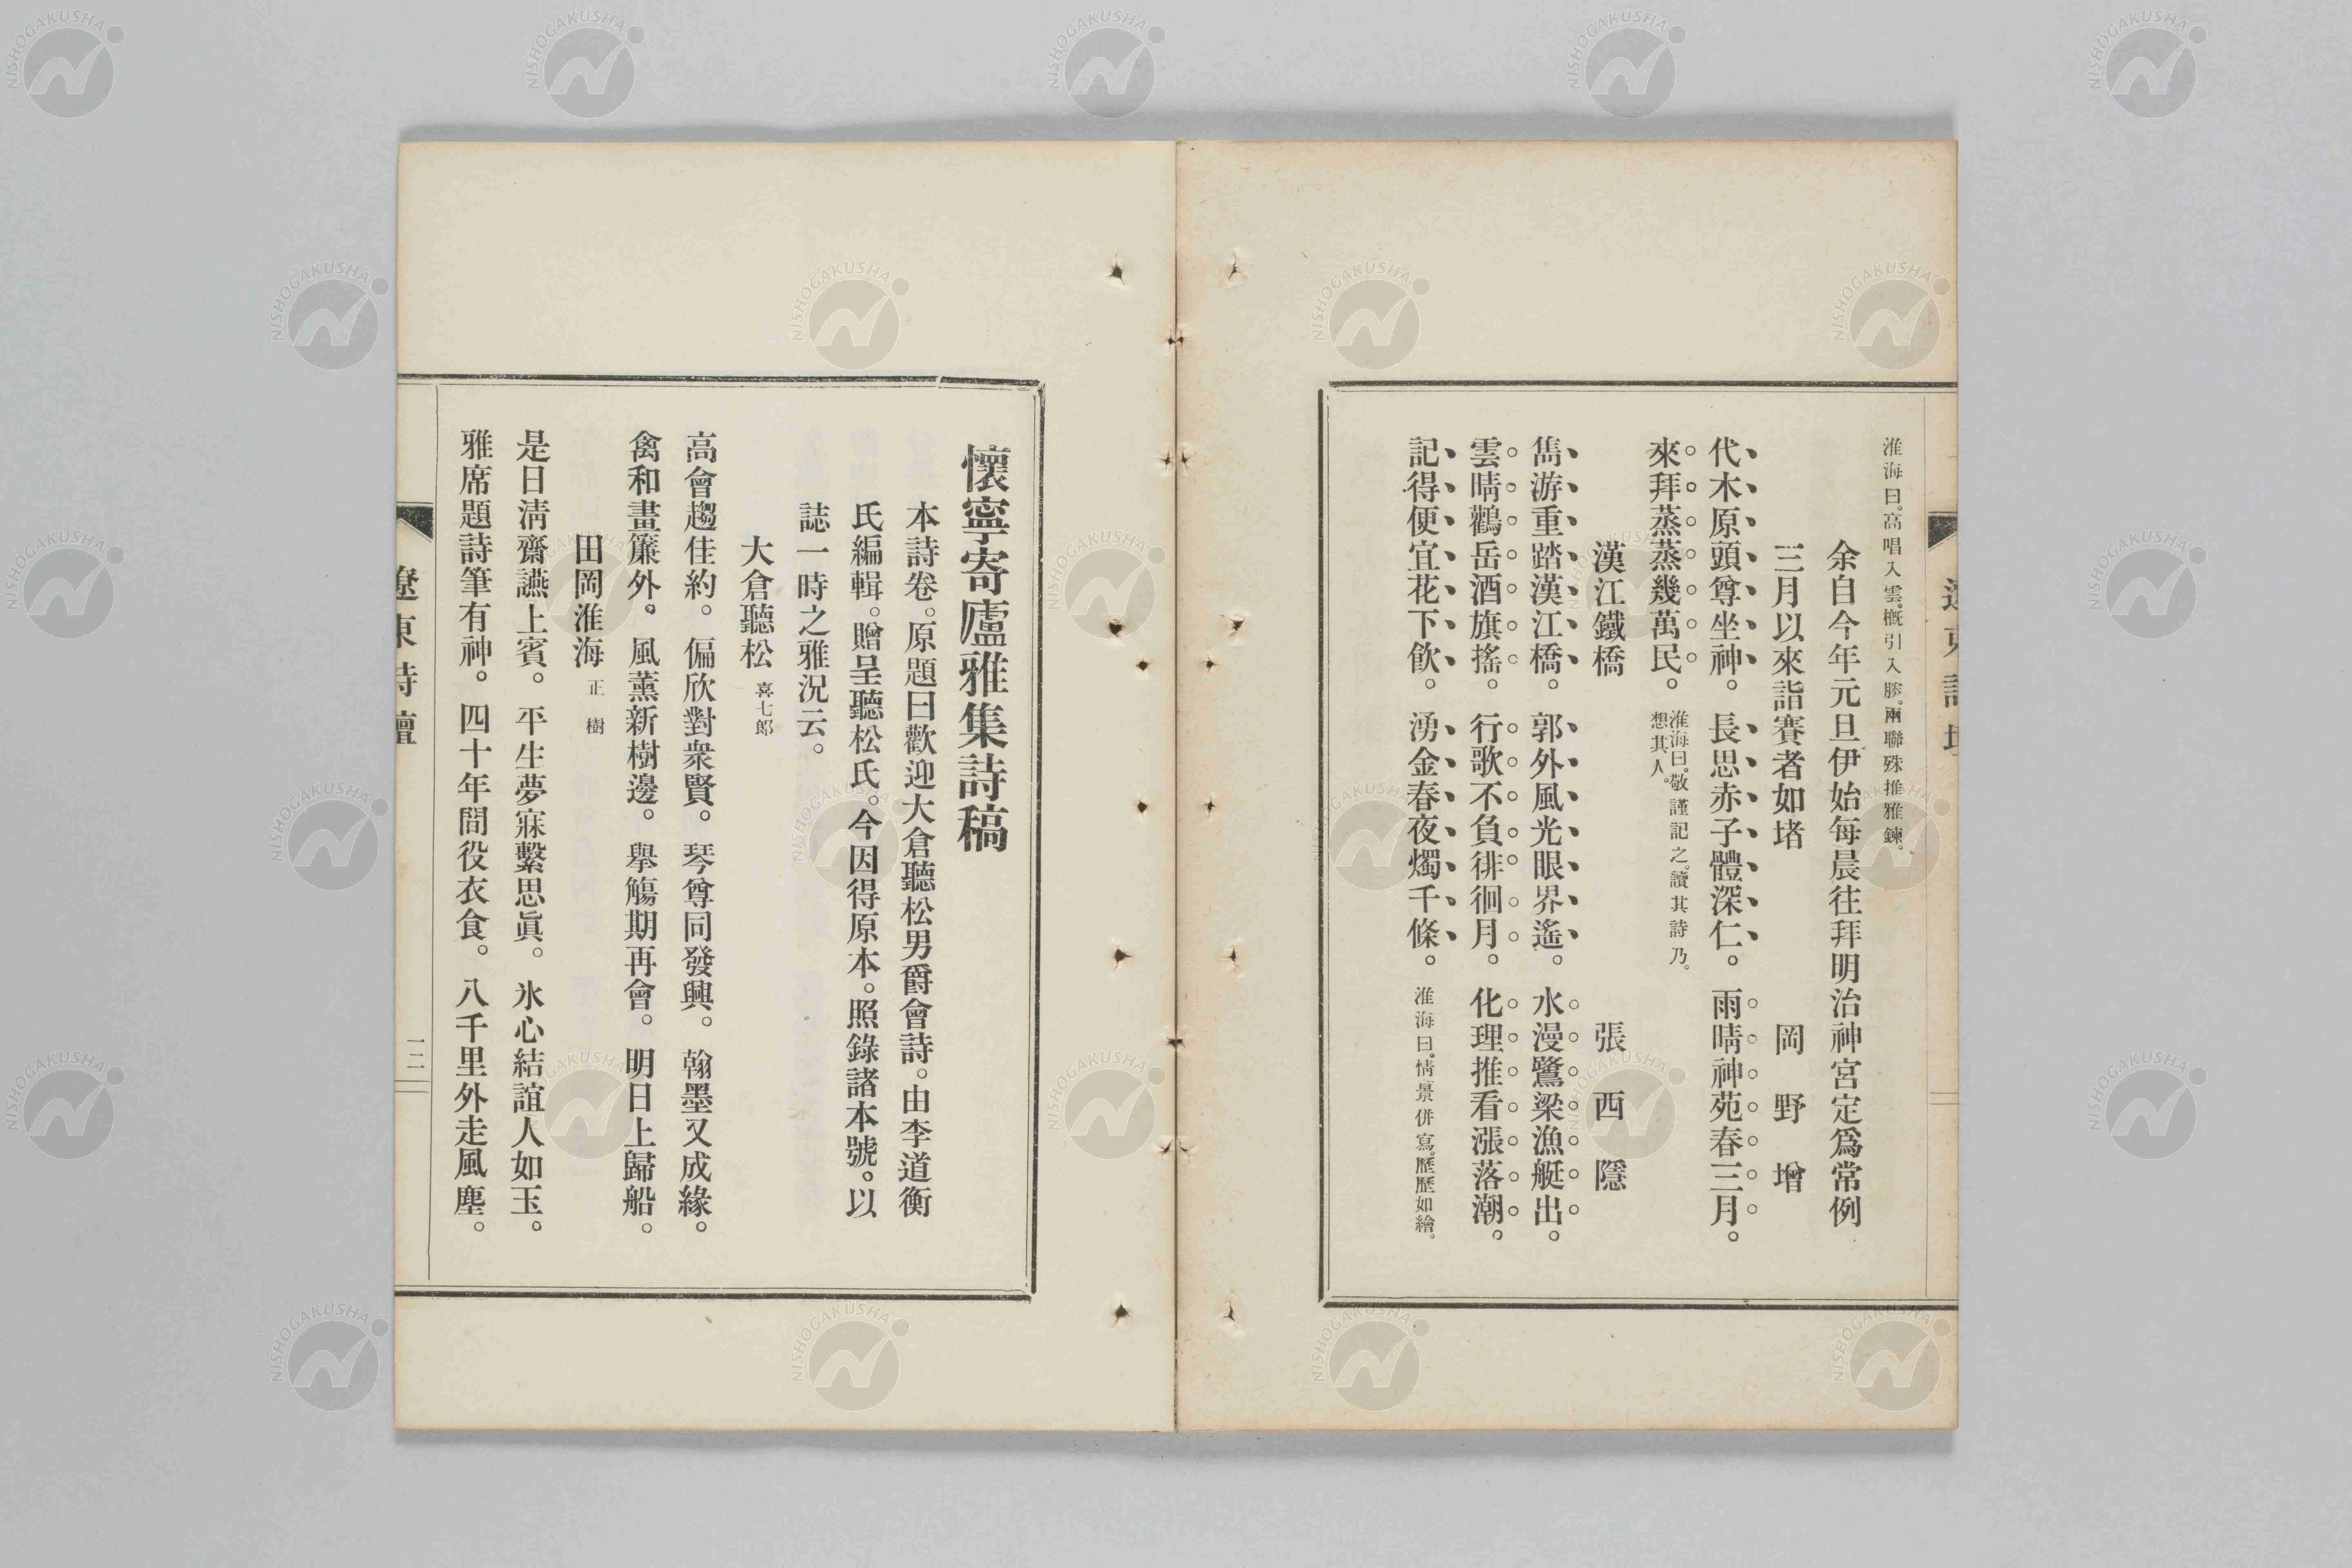 淮海曰。高唱入雲。槪引入勝。兩聯殊推雅鍊。
余自今年元旦伊始每晨往拜明治神宮定爲常例
三月以來詣賽者如堵　岡野增
代木原頭尊坐神。長思赤子體深仁。雨晴神苑春三月。
來拜蒸蒸幾萬民。淮海曰。敬謹記之。讀其詩乃。
想其人。
漢江鐵橋　張西隱
雋游重踏漢江橋。郭外風光眼界遙。水漫鷺梁漁艇出。
雲晴鸛岳酒旗搖。行歌不負徘徊月。化理推看漲落潮。
記得便宜花下飮。湧金春夜燭千條。淮海曰。情景併寫。歷歷如繪。
懷寧寄廬雅集詩稿
本詩卷。原題曰歡迎大倉聽松男爵會詩。由李道衡
氏編輯。贈呈聽松氏。今因得原本。照錄諸本號。以
誌一時之雅況云。
大倉聽松　喜七郞
高會趨佳約。偏欣對衆賢。琴尊同發興。翰墨又成緣。
禽和畫簾外。風薰新樹邊。舉觴期再會。明日上歸船。
田岡淮海　正樹
是日淸齋讌上賓。平生夢寐繫思眞。氷心結誼人如玉。
雅席題詩筆有神。四十年間役衣食。八千里外走風塵。
遼東詩壇
一二
NISHOGAKUSHA